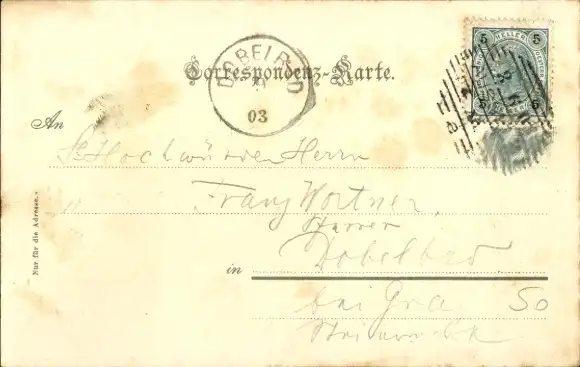 5 HELLER 5
5 5
DOBELBAD
XI
03
Correspondenz-Karte.
An
Sr Hochwürden Herrn
" Franz Wortner
Pfarrer
in Dobelbad
bei Graz
Steiermark
Nur für die Adresse.